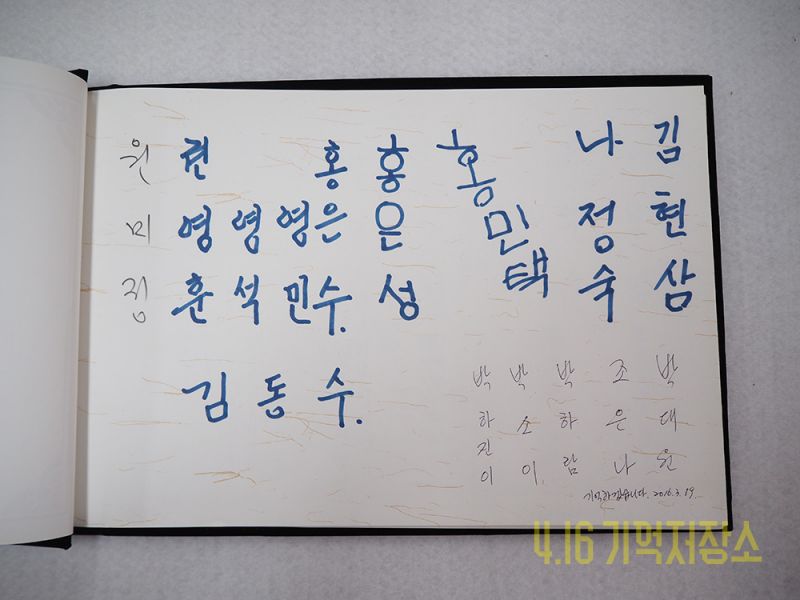 김현삼
나정숙
홍민택
홍은성
홍은수.
영민
영석
권영훈
원미정
김동수.
박대원
조은나
박하람
박소이
박하진이
기억하겠습니다. 2016.3.19.
4.16 기억저장소